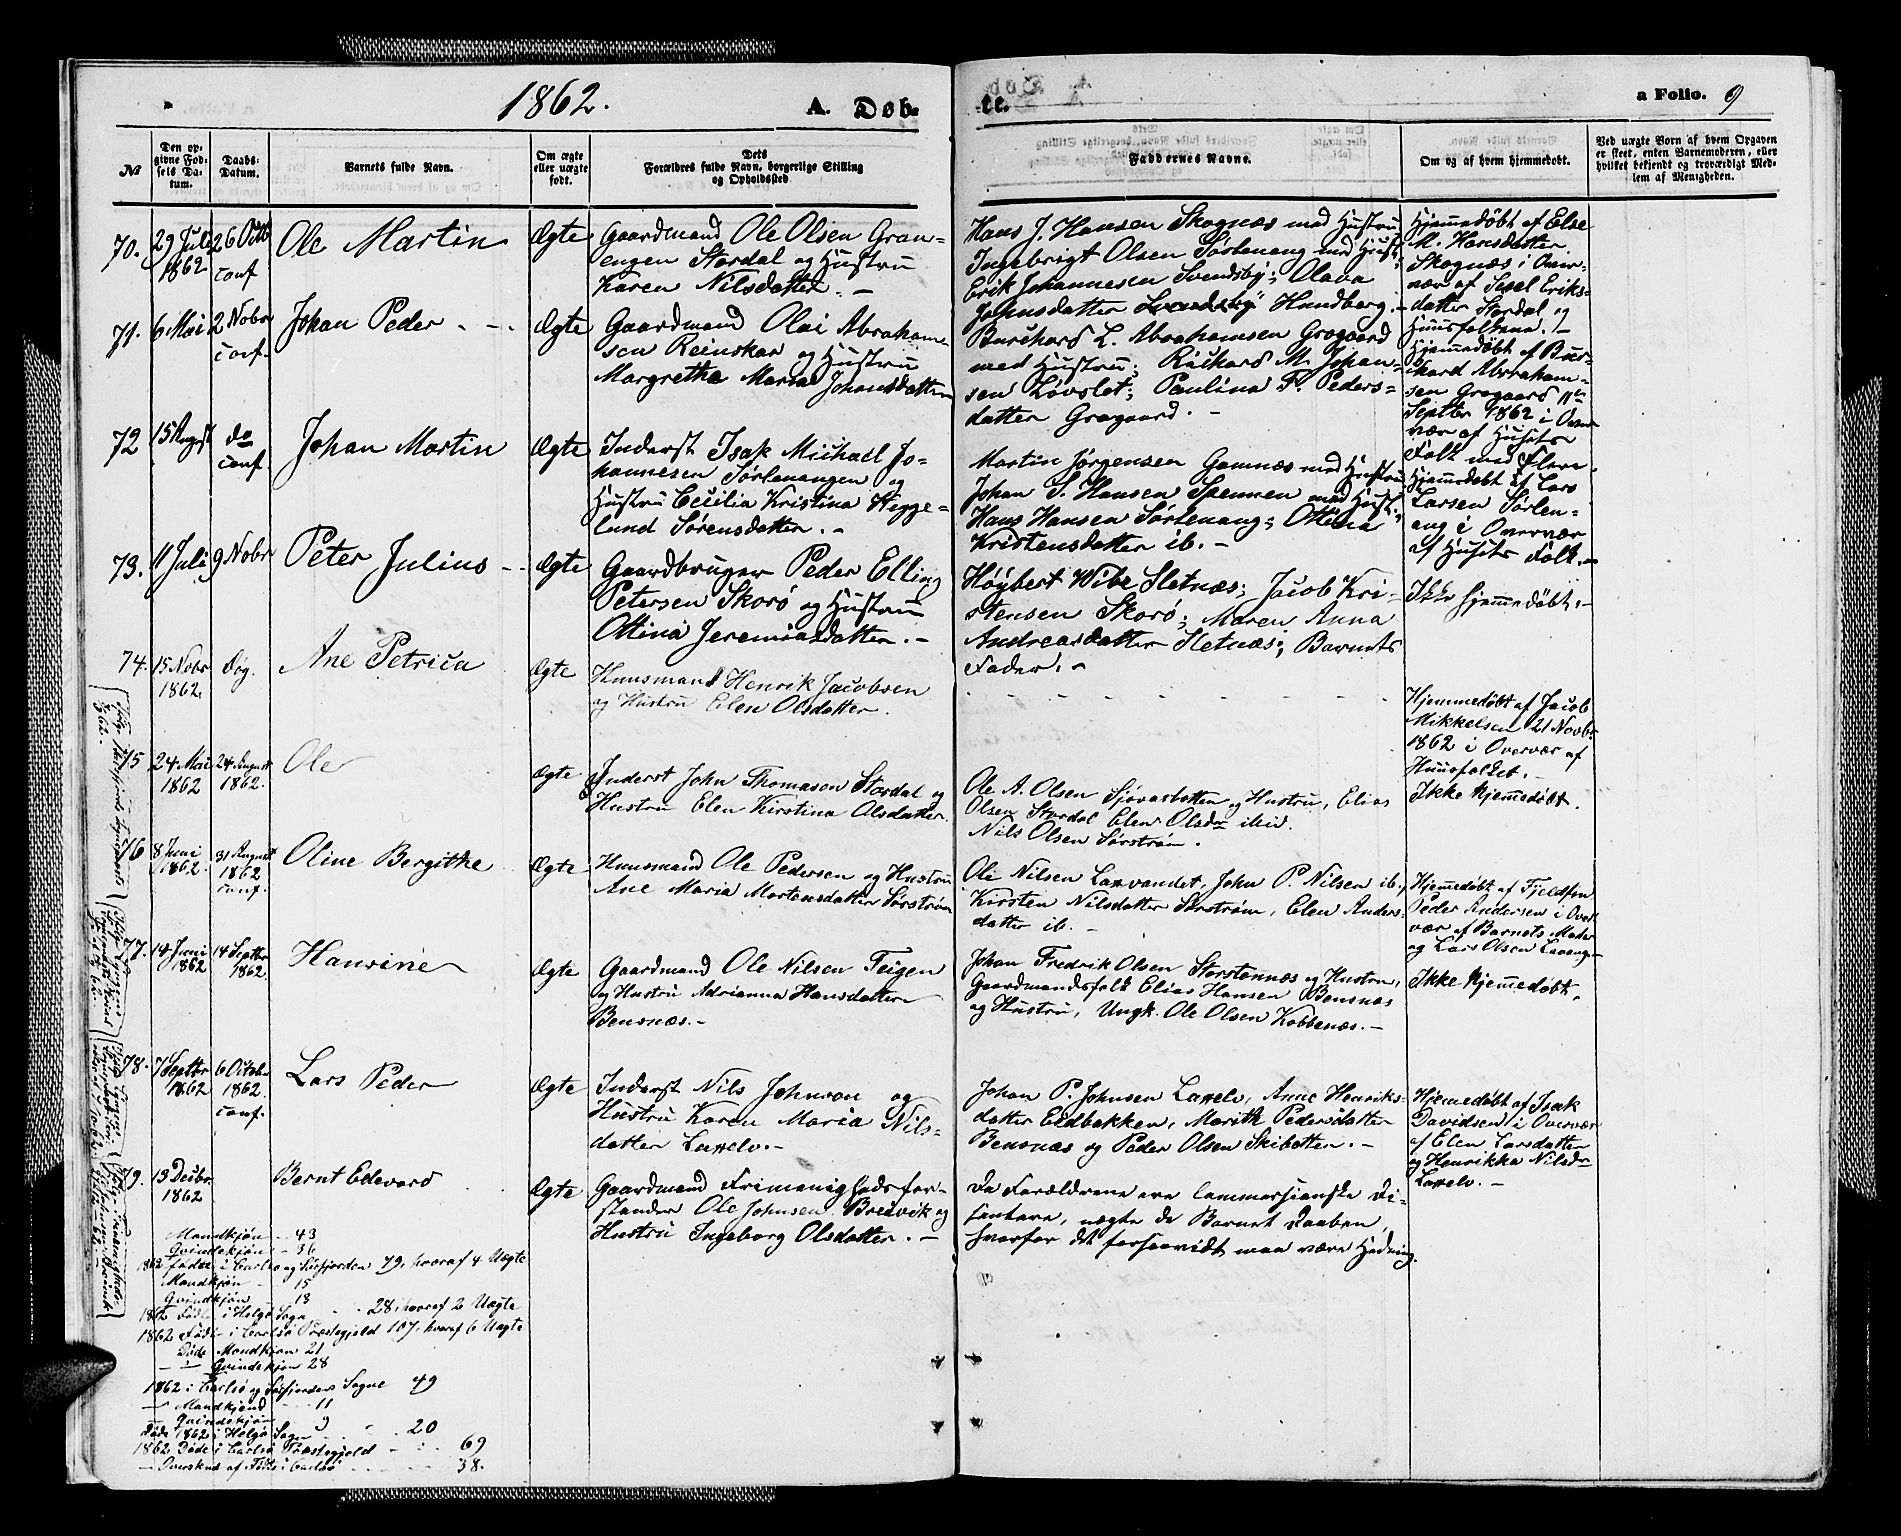 1862.
A. Døb-
te.
a Folio. 9
No
Den op-
givne Fød-
sels Da-
tum.
Daabs-
Datum.
Barnets fulde Navn.
Om ægte
eller uægte
født.
Dets
Forældres fulde Navn, borgerlige Stilling
og Opholdssted
Faddernes Navne.
Om og af hvem hjemmedøbt.
Ved uægte Børn af hvem Opgaven
er skeet, enten Barnemoderen, eller
hvilket bekjendt og troværdigt Med-
lem af Menigheden.
70.
29 Juli
1862
26 Octb
conf
Ole Martin
Ægte
Gaardmand Ole Olsen Gran-
engen Stordal og Hustru
Karen Nilsdatter. –
Hans J. Hansen Skognæs med Hustru
Ingebrigt Olsen Sørlenang med Hust.;
Erik Johannesen Svendsby; Olava
Johnsdatter Svendsby Hundberg. –
Hjemmedøbt af Else
M. Hansdatter
Skognæs i Over-
vær af Sesel Eriks-
datter Stordal og
Huusfolkene. –
71.
6 Mai
2 Nobr
conf.
Johan Peder. - -
Ægte
Gaardmand Olai Abraham-
sen Reinskar og Hustru
Margrethe Maria Johansdatter
Burchard L. Abrahamsen Grøgaard
med Hustru; Rickard M. Johan-
sen Løvslet; Paulina F. Peders-
datter Grøgaard. –
Hjemmedøbt af Bur-
ckard Abraham-
sen Grøgaard 11te
Septbr 1862 i Over
vær af Husets
Folk med Flere.
72
15 August
do
conf.
Johan Martin
Ægte
Inderst Isak Michael Jo-
hannesen Sørlenangen og
Hustru Cecilia Kristina Hegge-
lund Sørensdatter. –
Martin Jørgensen Gamnæs med Hustru
Johan S. Hansen Spennen med Hust.;
Hans Hansen Sørlenang; Ottina
Kristensdatter ib. –
Hjemmedøbt af Lars
Larsen Sørlen-
ang i Overvær
af Husets Folk. –
73.
11 Juli
9 Nobr
Peter Julius - -
Ægte
Gaardbruger Peder Elling
Petersen Skorø og Hustru
Ottina Jeremiasdatter. –
Høybert Wibe Sletnæs; Jacob Kri-
stensen Skorø; Maren Anna
Andreasdatter Sletnæs; Barnets
Fader. –
Ikke hjemmedøbt. –
74.
15 Nobr
1862.
død.
Ane Petrica
Ægte
Huusmand Henrik Jacobsen
og Hustru Elen Olsdatter.
Hjemmedøbt af Jacob
Mikkelsen 21 Novbr
1862 i Overvær af
Huusfolket. –
75
24 Mai
1862
24 August
1862.
Ole
Ægte
Inderst John Thomasen Stordal og
Hustru Elen Kirstina Olsdatter.
Ole A. Olsen Sjøvasbotten og Hustru, Elias
Olsen Stordal Elen Olsdr ibid.
Nils Olsen Sørstrøm.
Ikke hjemmedøbt.
76
8 Juni
1862.
31 August
1862
conf.
Oline Bergithe
Ægte
Huusmand Ole Pedersen og Hustru
Ane Maria Mortensdatter Sørstrøm
Ole Nilsen Laxvandet, John P. Nilsen ib.,
Kirsten Nilsdatter Sørstrøm, Elen Anders-
datter ib. –
Hjemmedøbt af Fjeldfin
Peder Andersen i Over-
vær af Barnets Moder
og Lars Olsen Lavang –
77.
14 Juni
1862
14 Septbr
1862.
Hansine
Ægte
Gaardmand Ole Nilsen Teigen
og Hustru Adrianna Hansdatter
Bensnæs. –
Johan Fredrik Olsen Storstennæs og Hustru,
Gaardmandsfolk Elias Hansen Bensnæs
og Hustru, Ungk. Ole Olsen Kobbenæs. –
Ikke hjemmedøbt.
78.
7 Septbr
1862
6 October
1862.
conf.
Lars Peder
Ægte
Inderst Nils Johnson og
Hustru Karen Maria Nils-
datter Laxelv. –
Johan P. Johnsen Laxelv, Anne Henriks-
datter Eidbakken, Marith Pedersdatter
Bensnæs og Peder Olsen Skibotten. –
Hjemmedøbt af Isak
Davidsen i Overvær
af Elen Larsdatter
og Henrikka Nilsdr
Laxelv. –
79.
13 Decbr
1862
Bernt Edevard
Ægte
Gaardmand Frimenighedsfor-
stander Ole Johnsen Breivik og
Hustru Ingeborg Olsdatter. –
Da Forældrene ere lammersianske Di-
sentere, nægte de Barnet Daaben,
hvorfor det forsaavidt maa være Hedning.
Mandkjøn - 43
Qvindekjøn - 36
1862 fødte i Carlsø og Ulsfjorden 79, hvoraf 4 Uægte
Mandkjøn - 15
Qvindekjøn - 13
1862 Født i Helgø Sogn - - 28 hvoraf 2 Uægte
1862 Født i Carlsø Præstegjeld 107, hvoraf 6 Uægte
Døde Mandkjøn 21
— " — Qvindekjøn 28
1862 i Carlsø og Ulsfjordens Sogne 49
— Mandkjønd - - 11
— Qvindekjøn - 9
Døde 1862 i Helgø Sogn - - 20
1862 Døde i Carlsø Præstegjeld - - 69
— Overskud af Fødte i Carlsø - - - 38.